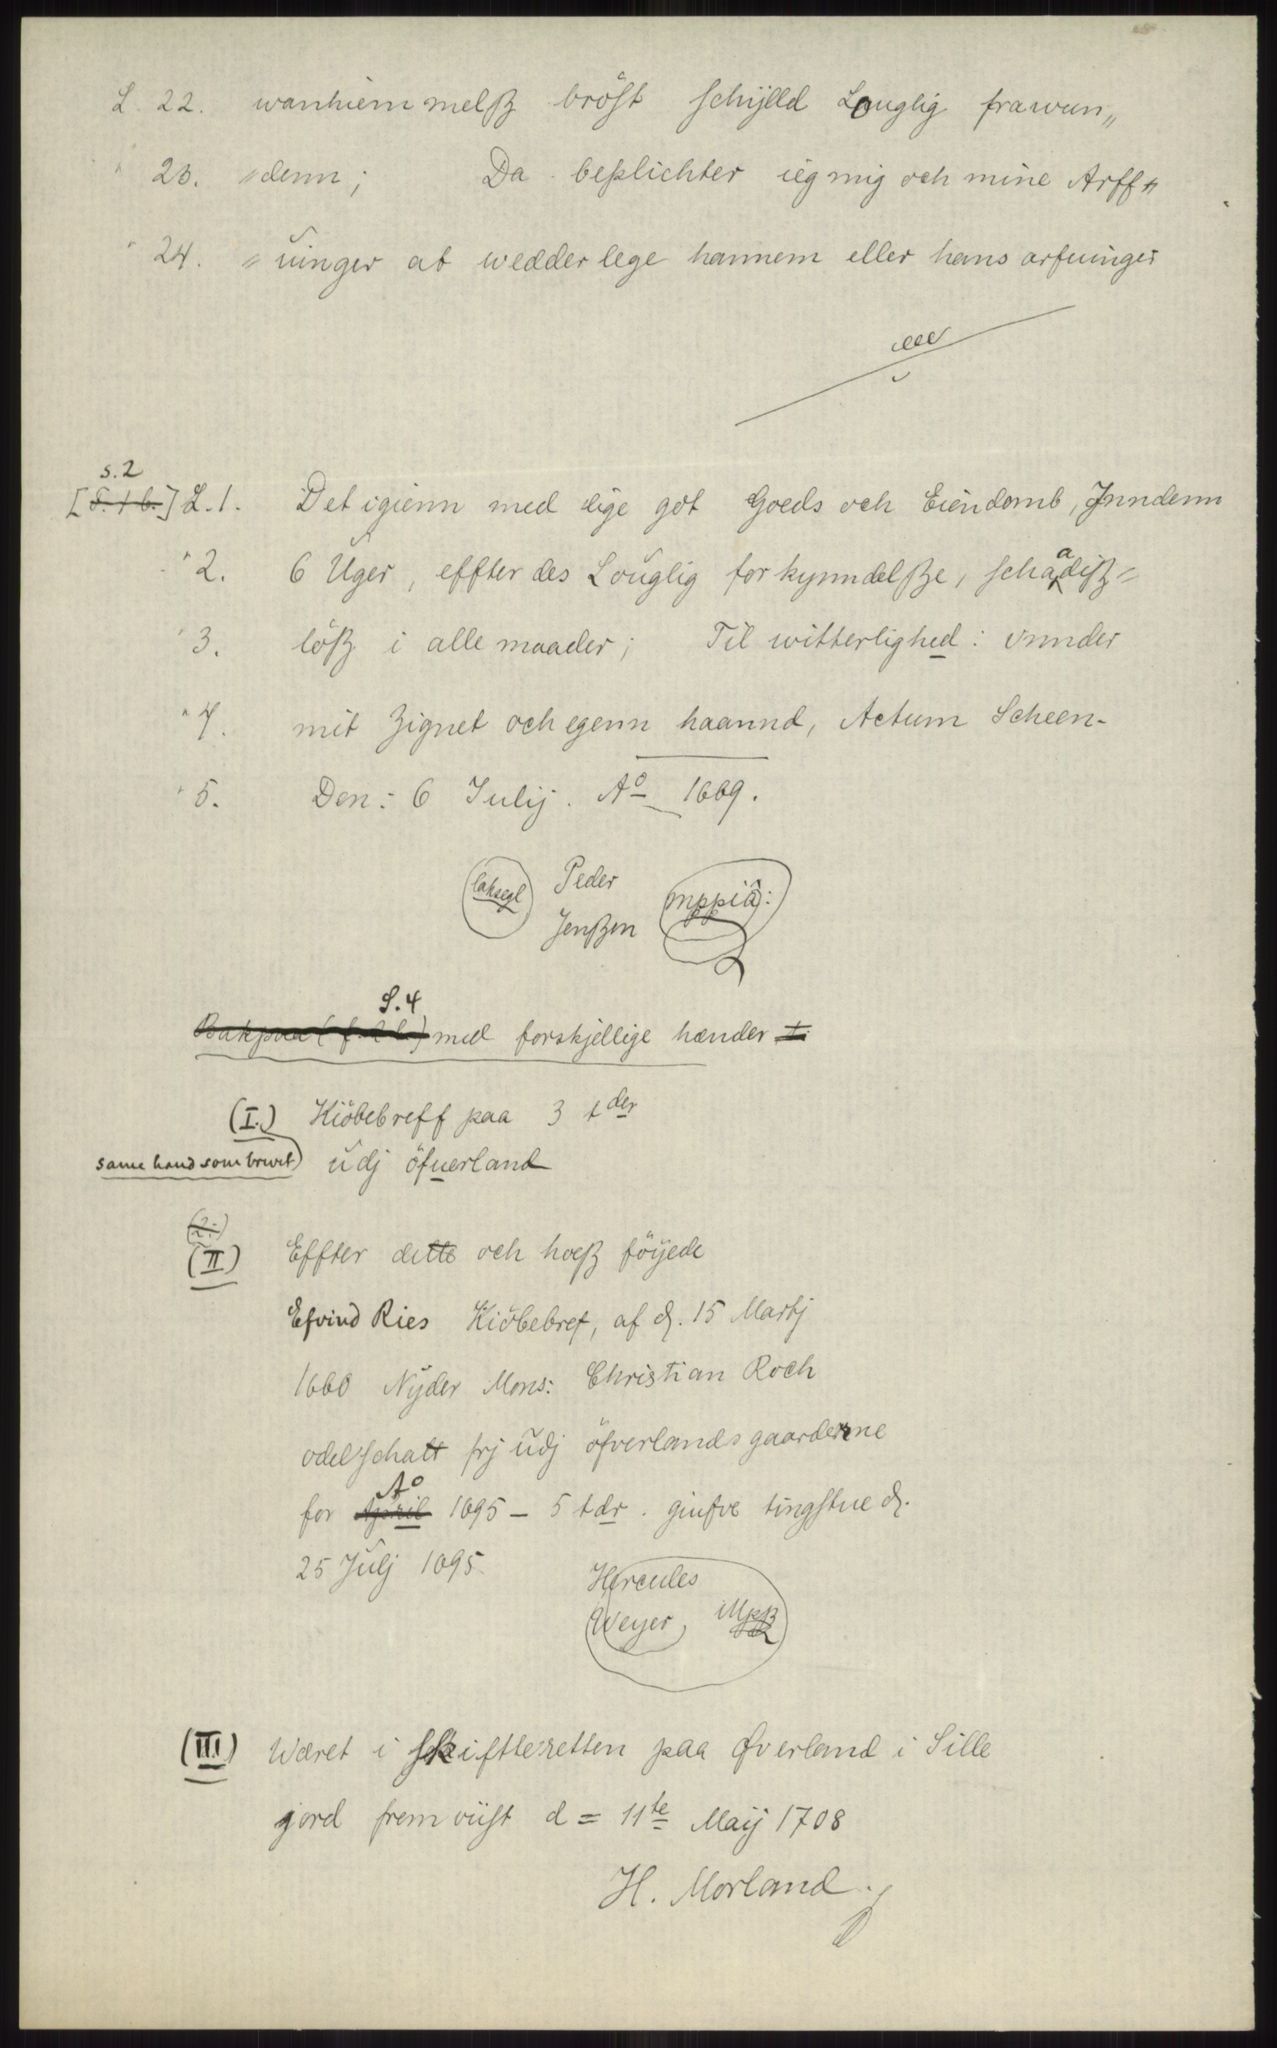 L. 22. wanhiemmelß bröst schijlld Louglig frawun„
" 23. „denn; Da beplichter ieg mig och mine Arff„
" 24. „uinger at wedderlege hannem eller hans arfuinger
s.2
[S. 1 b.] L. 1. Det igienn med lige got Goeds och Eiendomb, Jnndenn
" 2. 6 Uger, effter des Louglig forkynndelße, schaadiß=
" 3. löß i alle maader; Til witterlighed: vnnder
" 4. mit Zignet och egenn haannd, Actum Scheen-
" 5. Den: 6 Julij. Ao 1669.
laksegl Peder mppiâ:
Jenßen
S. 4
Bakpaa med forskjellige hænder
(I.) Kiöbebreff paa 3 tder
same haand som brevet) udj öfuerland
(2.)
(II) Effter dette och hoeß föijede
Efvind Ries Kiöbebref, af d. 15 Martj
1660 Nyder Mons: Christian Roch
odelschatt frj udj öfverlands gaarderne
Ao
for April 1695 – 5 tdr. giufve tingstue d.
25 Julj 1695.
Hercules
Weyer, Mpß
(III) Wæret i skifteretten paa Øverland i Sille
jord fremviist d = 11te Maij 1708
H. Morland.